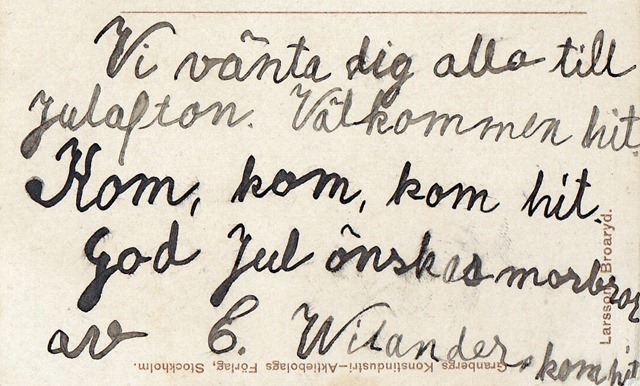 Vi vänta dig alla till
Julafton. Välkommen hit.
Kom, kom, kom hit.
God Jul önskas morbror
av C. Wilander, kom hit
Larsson, Broaryd.
Granbergs Konstindustri-Aktiebolags Förlag, Stockholm.